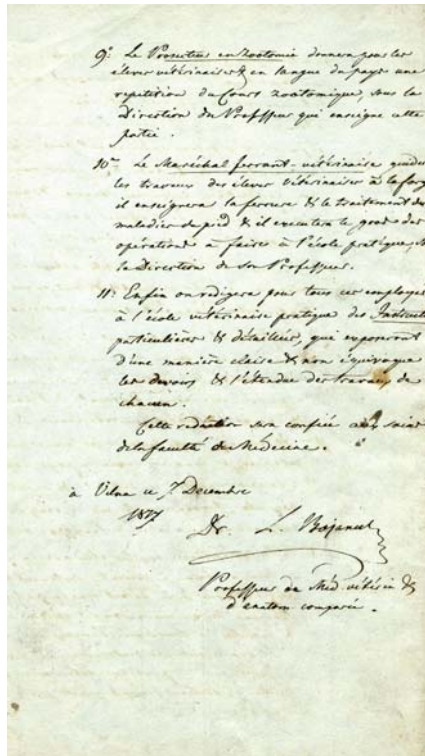 9º. Le Prosecteur en Zootomie donnera pour les
élèves vétérinaires & en langue du pays une
repetition du Cours zootomique, sous la
Direction du Professeur qui enseigne cette
partie.
10º. Le Maréchal ferrant-vétérinaire guidera
les travaux des élèves vétérinaires à la forge
il enseignera la ferrure & le traitement des
maladies du pied & il executera le
opérations à faire à l'école pratique,
la Direction de son Professeur.
11º. Enfin on redigera pour tous ces employés
à l'école vétérinaire pratique des Instruct
particulières & détaillées, qui exposeront
d'une manière claire & non équivoque
les devoirs & l'étendue des travaux de
chacun.
Cette redaction sera confiée aux soins
de la faculté de Médecine.
à Vilna ce 7. Decembre
Dr. L. Bojanus
Professeur de Méd. vétérin &
d'anatom. comparée.